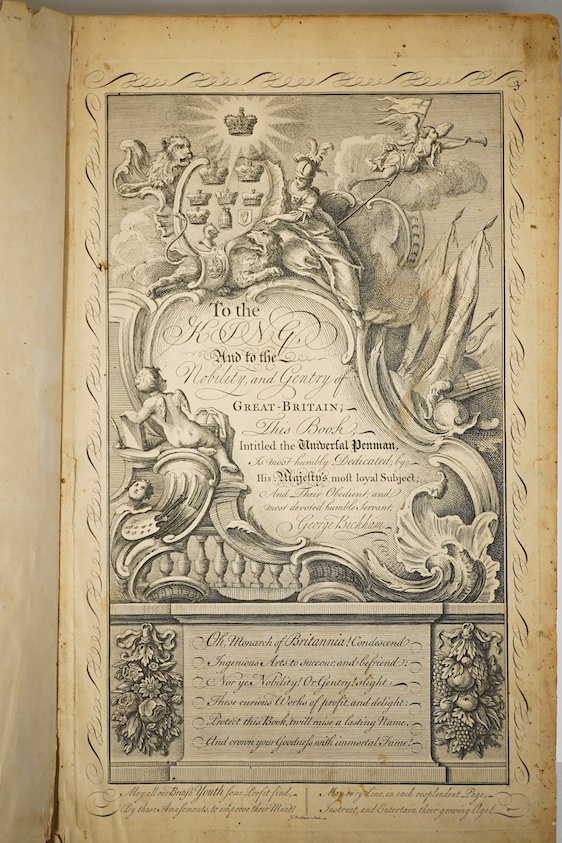 To the
KING,
And to the
Nobility, and Gentry of
GREAT-BRITAIN;
This Book
Intitled the Universal Penman,
Is most humbly Dedicated, by;
His Majesty's most loyal Subject;
And Their Obedient, and
most devoted humble Servant,
George Bickham.
Oh, Monarch of Britannia! Condescend
Ingenious Arts to succour, and befriend;
Nor ye Nobility! Or Gentry! slight
These curious Works of profit, and delight:
Protect this Book, twill raise a lasting Name,
And crown your Goodness with immortal Fame!
May all our British Youth some Profit find,
By these Amusements, to improve their Mind!
May ev'ry Line, in each resplendent Page,
Instruct, and Entertain their growing Age!